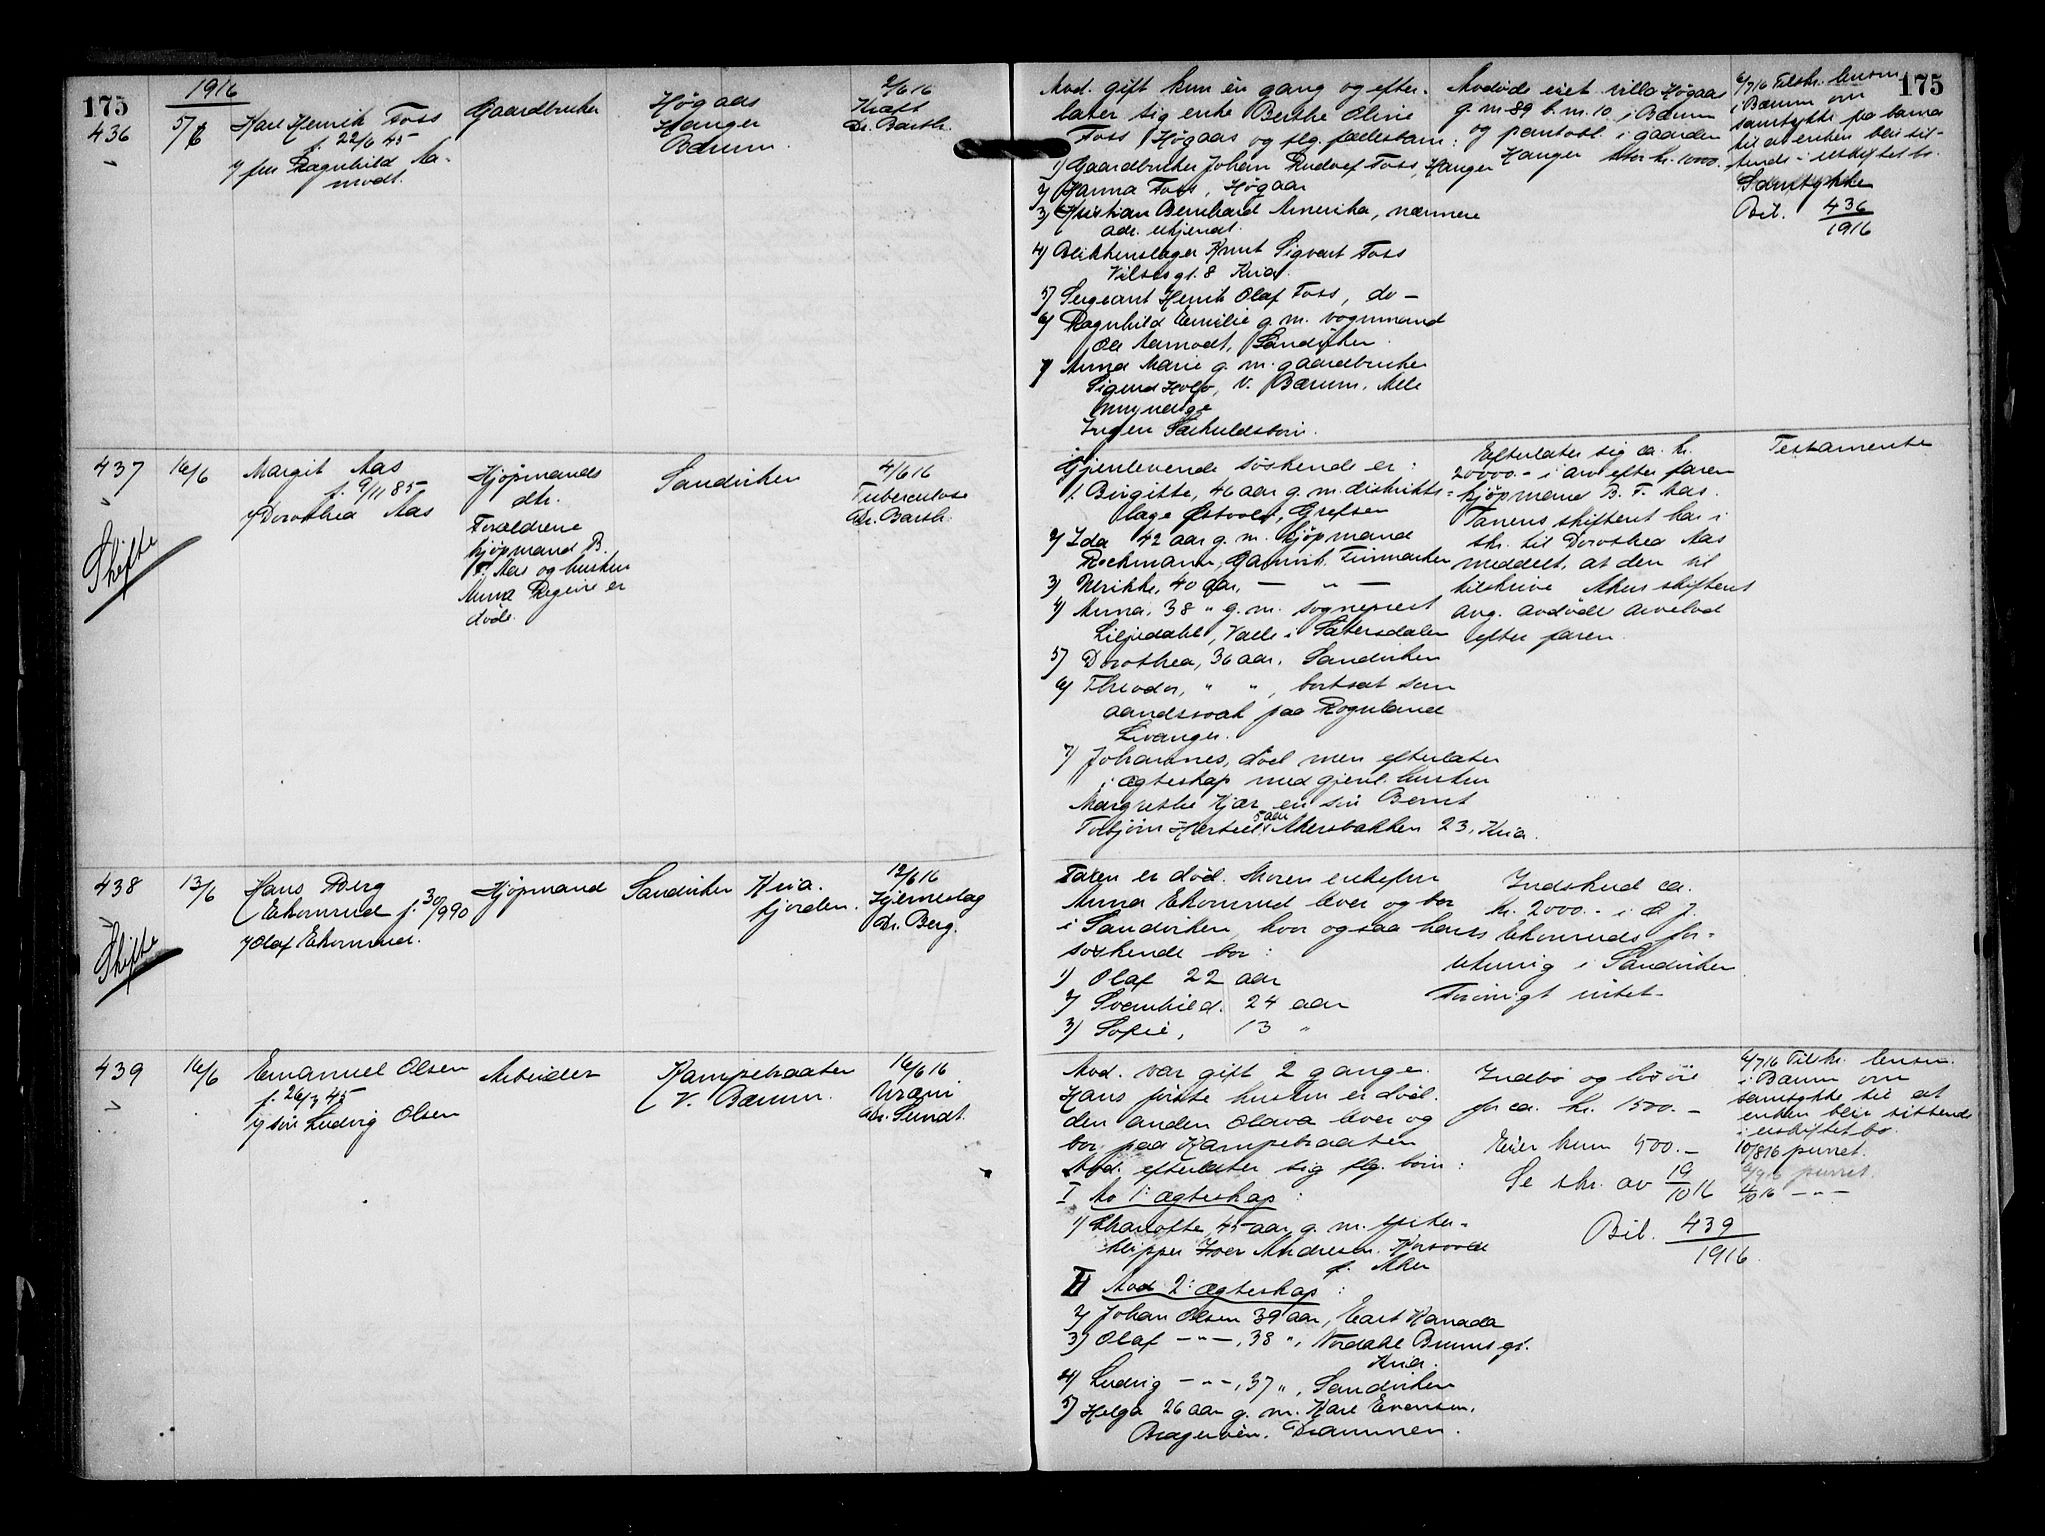 175
1916
436
5/6
Karl Henrik Foss
f. 22/6 45
v/ fru Ragnhild Aa-
modt.
Gaardbruker
Høgaas
Hanger
Bærum.
2/6 16
Kræft
Dr. Barth.
Avd. gift kun én gang og efter-
later sig enke Berthe Oline
Foss Høgaas og flg. fællesbarn:
1) Gaardbruker Johan Rudolf Foss, Hanger
2) Hanna Foss, Høgaas
3) Kristian Bernhard Amerika, nærmere
adr. ukjendt.
4) Blikkenslager Knut Sigvart Foss
Vibesgt. 8 Kria.
5) Sergeant Henrik Olaf Foss, do –
6) Ragnhild Emilie g. m. vognmand
Ole Aamodt, Sandviken.
7) Anna Marie g. m. gaardbruker
Sigurd Holo, V. Bærum. Alle
myndige
Ingen Særkuldsbørn.
Avdøde eiet villa Høgaas
g. nr 89 b. nr. 10 i Bærum
og pantobl. i gaarden
Hanger stor kr. 1000.
175
6/7 16 Tilskr. lensm.
i Bærum om
samtykke fra barna
til at enken blir sit-
tende i uskiftet bo.
Samtykke
Bil. 436
1916
437
16/6
Margit Aas
f. 9/11 85
v/ Dorothea Aas
Skifte
Kjøpmands
dtr.
Forældrene
kjøpmand B.
F. Aas og hustru
Anna Regine er
døde.
Sandviken
4/6 16
Tuberculose
Dr. Barth.
Gjenlevende søskende er:
1. Birgitte, 46 aar g. m. distrikts-
læge Østvold, Grefsen
2) Ida 42 aar g. m. kjøpmand
Rochmann, Gamvik, Finmarken
3) Ulrikke, 40 aar, – " –
4) Anna, 38 " g. m. sogneprest
Liljedahl, Valle i Sætersdalen
5) Dorothea, 36 aar, Sandviken
6) Theodor, " " , bortsat som
aandssvak paa Rognland
Levanger.
7) Johannes, død men efterlater
i ægteskap med gjenl. hustru
Margrethe Kjær en søn Bernt
Torbjørn Hertzel 5 aar Akersbakken 23, Kria.
Efterlater sig ca. kr.
20000.- i arv efter faren
kjøpmand B. F. Aas.
Tanens skifteret har i
skr. til Dorothea Aas
meddelt, at den vil
tilskrive Aker skifteret
ang. avdødes arvelod
efter faren.
Testamente
438
13/6
Hans Berg
Ekornrud f. 30/9 90
v/ Olaf Ekornrud.
Skifte
Kjøpmand
Sandviken
Kria.
fjorden.
12/6 16
Hjerneslag
Dr. Berg.
Faren er død. Moren enkefru
Anna Ekornrud lever og bor
i Sandviken, hvor ogsaa hans
søskende bor:
1) Olaf 22 aar
2) Svanhild. 24 aar
3) Sofie, 13 "
Indskud ca.
kr. 2000.- i O. J.
Ekornruds for-
retning i Sandviken
Forøvrigt intet.
439
16/6
Emanuel Olsen
f. 26/3 45
v/ søn Ludvig Olsen
Arbeider
Kampebraaten
V. Bærum.
16/6 16
Uræmi
Dr. Sundt.
Avd. var gift 2 gange.
Hans første hustru er død.
den anden Olava lever og
bor paa Kampebraaten
Avd. efterlater sig flg. børn:
I Av 1: ægteskap:
1) Charlotte 45 aar g. m.
klipper Iver Andresen. Korsvold
p. Aker
II Avd 2: ægteskap:
2) Johan Olsen 39 aar, East Kanada
3) Olaf – " –, 38 ", Nordahl Brunsgt.
Kria.
4) Ludvig – " –, 37 ", Sandviken
5) Helga 26 aar g. m. Karl Evensen,
Bragerøen. Drammen.
Indbo og løsøre
for ca. kr. 1500.–
Eier kun 500.–
Se skr. av 19/10 16
Bil. 439
1916.
6/7 16 Tilskr. lensm.
i Bærum om
samtykke til at
enken blir sittende
i uskiftet bo.
10/8 16 purret.
6/9 16 purret.
4/10 16 – " –